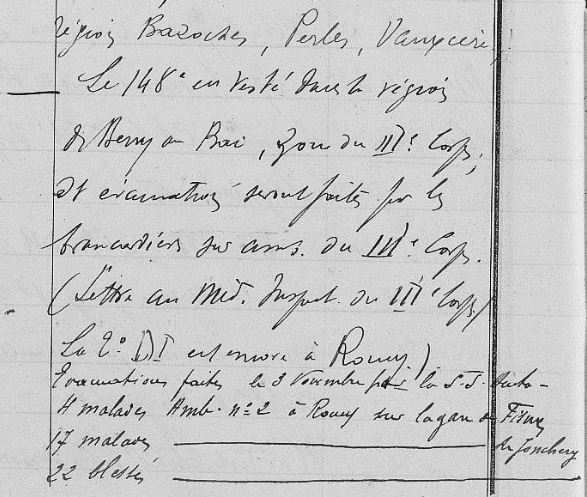 région Bazoches, Perles, Vauxcéré,
Le 148e est resté dans la région
de Berry au Bac, zone du IIIe Corps,
et évacuations seront faites par les
brancardiers du IIIe Corps.
(Lettre au Méd. Inspect. du IIIe Corps)
La 2e DI est encore à Roucy)
Evacuations faites le 3 Novembre par la S.S. Auto-
4 malades Amb. n° 2 à Roucy sur la gare de Fismes
17 malades de Jonchery
22 blessés